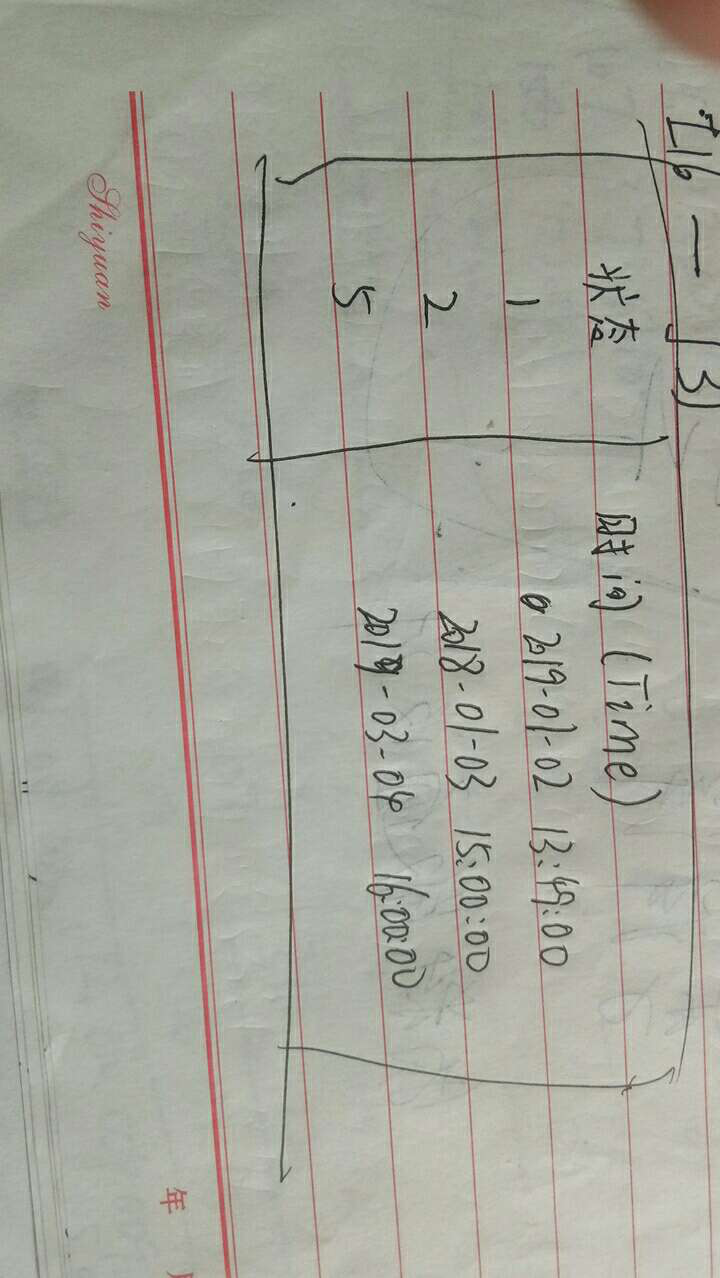 状态 时间 (Time)
1 2019-01-02 13:49:00
2 2018-01-03 15:00:00
5 2019-03-04 16:00:00
Shiyuan
年